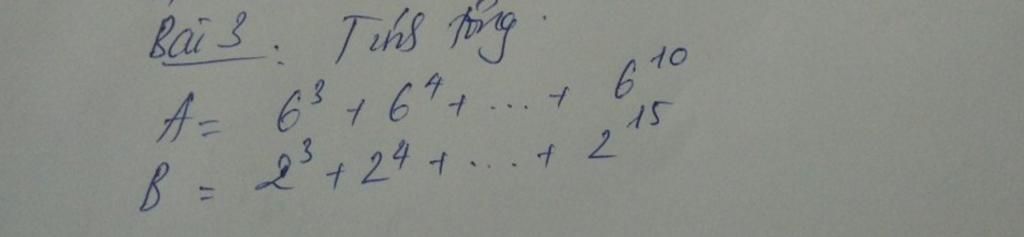 Bài 3 : Tính tổng.
A = 6³ + 6⁴ + ... + 6¹⁰
B = 2³ + 2⁴ + ... + 2¹⁵